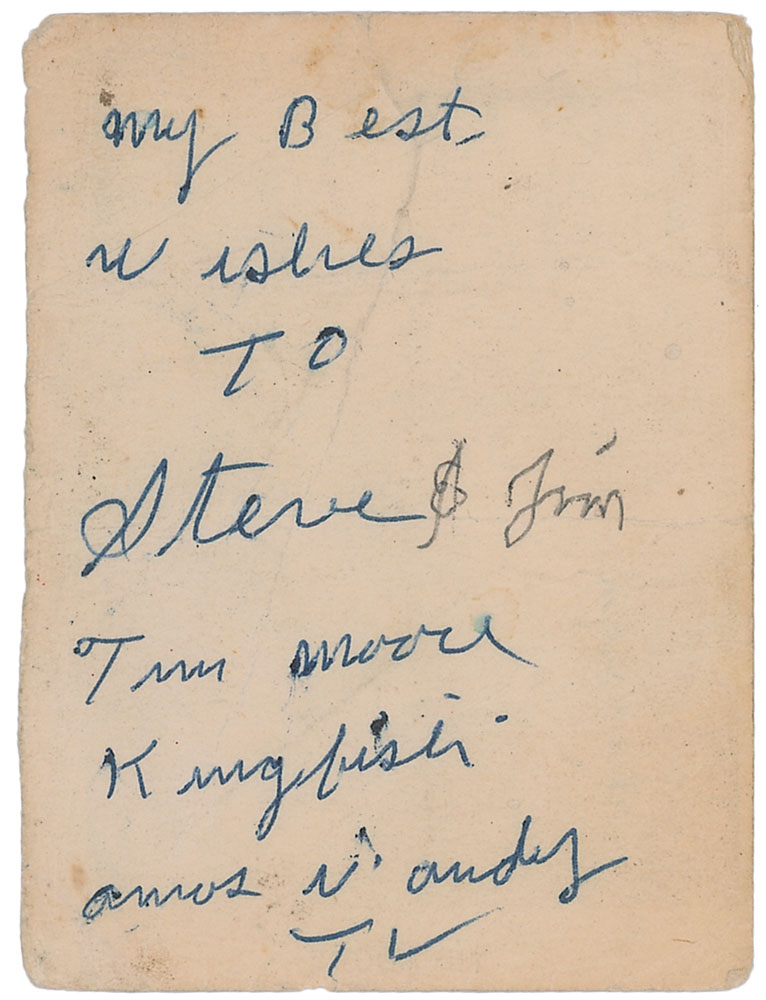 my Best
wishes
TO
Steve & Jim
Tim moore
Kingfish
amos n' andy
TV